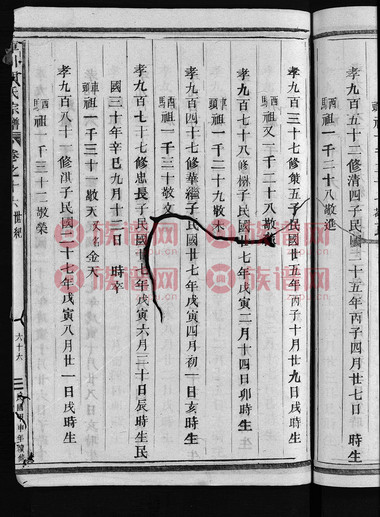 孝九百五十二修清四子民國二十五年丙子四月廿七日 時生
西騐祖一千三十八敬進
孝九百三十一修策五子民國廿五年丙子十月廿九日戌時生
西騐祖又一千二十八敬
孝九百七十八修
子民國廿七年戊寅二月十四日卯時生
車頭祖一千二十九敬木
孝九百四十七修華繼子民國廿七年戊寅四月初一日亥時生
西騐祖一千三十敬文
孝九百七十七修忠長子民國廿七年戊寅六月三十日辰時生民
國三十年辛巳九月十三日 時卒
車頭祖一千三十一敬天又名金天
孝九百八十一修淇子民國二十七年戊寅八月廿一日戌時生
西騐祖一千三十二敬榮
氏宗譜
卷之十
六世紀
六十六
族譜网